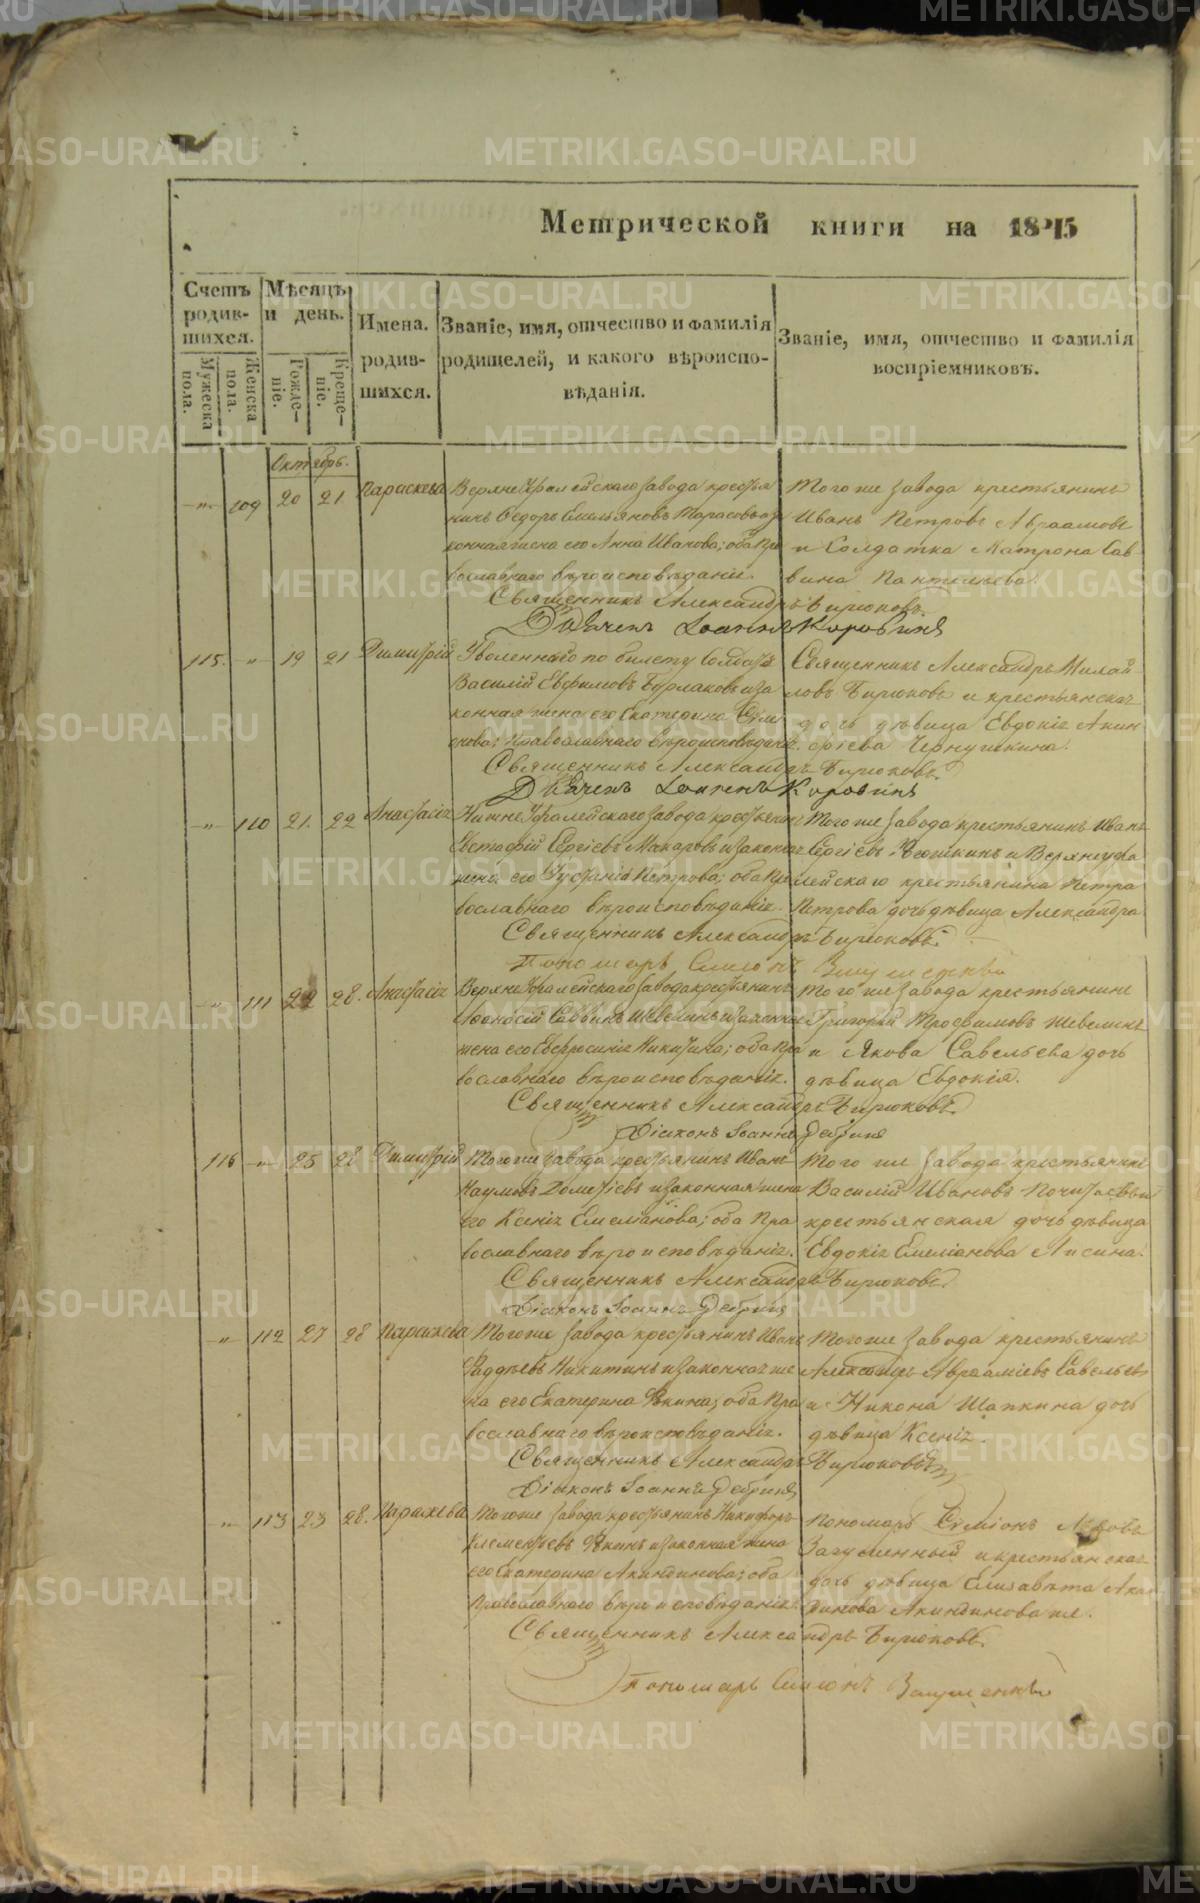 Метрической книги на 1845
Счетъ родив-шихся.
Мѣсяцъ и день.
Имена родив-шихся.
Званіе, имя, отчество и фамилія родителей, и какого вѣроиспо-вѣданія.
Званіе, имя, отчество и фамилія воспріемниковъ.
Мужеска пола.
Женска пола.
Рожде-ніе.
Креще-ніе.
Октябрь.
„ 109 20 21 Параскева
Верхне Уфалейскаго завода крестья
нинъ Ѳедоръ Емельяновъ Тарасовъ и за
конная жена его Анна Иванова; оба Пра
вославнаго вѣроисповѣданія.
Того же завода крестьянинъ
Иванъ Петровъ Абраамовъ
и Солдатка Матрона Сав-
вина Пантелѣева.
Священникъ Александръ Бирюковъ.
Діаконъ Іоаннъ Коровинъ
115. „ 19 21 Димитрій
Уволеннаго по билету Солдата
Василій Евфимовъ Бурлаковъ и за
конная жена его Екатерина
Православнаго вѣроисповѣданія.
Священникъ Александръ
Бирюковъ и крестьянская
дочь дѣвица Евдокія Акин
Чернушкина.
Священникъ Александръ Бирюковъ.
Діаконъ Іоаннъ Коровинъ
„ 110 21. 22 Анастасія
Нижне Уфалейскаго завода крестьянинъ
Евстафій Сергіевъ Макаровъ и законная
жена его Петрова; оба Пра
вославнаго вѣроисповѣданія.
Того же завода крестьянинъ Иванъ
Сергіевъ и Верхнеуфа
лейскаго крестьянина Петра
Петрова дочь дѣвица Александра
Священникъ Александръ Бирюковъ.
Пономарь Симіонъ
„ 111 22 28. Анастасія
Верхне Уфалейскаго завода крестьянинъ
Аѳонасій Саввинъ Шевелинъ и законная
жена его Евфросинія Никитина; оба Пра
вославнаго вѣроисповѣданія.
Того же завода крестьянинъ
Григорій Трофимовъ Шевелинъ
и Якова Савельева дочь
дѣвица Евдокія.
Священникъ Александръ Бирюковъ.
Діаконъ Іоаннъ
116 „ 25 28 Димитрій
Того же завода крестьянинъ Иванъ
Наумовъ Дометіевъ и законная жена
его Ксенія Емеліанова; оба Пра
вославнаго вѣроисповѣданія.
Того же завода крестьянинъ
Василій Ивановъ
крестьянская дочь дѣвица
Евдокія Емеліанова Лисина.
Священникъ Александръ Бирюковъ.
Діаконъ Іоаннъ
„ 112 27 28 Параскева
Того же завода крестьянинъ Иванъ
Фаддѣевъ Никитинъ и законная же
на его Екатерина оба Пра
вославнаго вѣроисповѣданія.
Того же завода крестьянинъ
Александръ Авраамiевъ Савельевъ
и Никона Шапкина дочь
дѣвица Ксенія.
Священникъ Александръ Бирюковъ
Діаконъ Іоаннъ
„ 113 23 28. Параскева
Того же завода крестьянинъ Никифоръ
Клементьевъ и законная жена
его Екатерина Акиндинова; оба
Православнаго вѣроисповѣданія.
Пономарь Симіонъ
и крестьянская
дочь дѣвица Елизавета
Акиндинова же.
Священникъ Александръ Бирюковъ.
Пономарь Симіонъ
METRIKI.GASO-URAL.RU